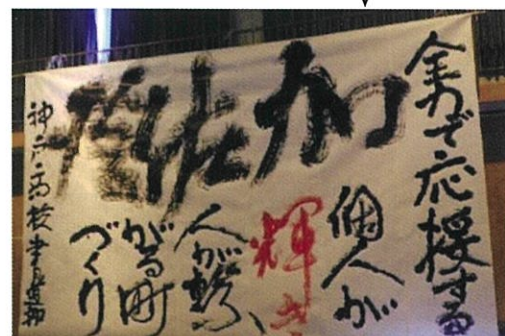 全力で応援する
加佐登
個人が
輝き、
人が繋
がる町
づくり
神戸高校書道部